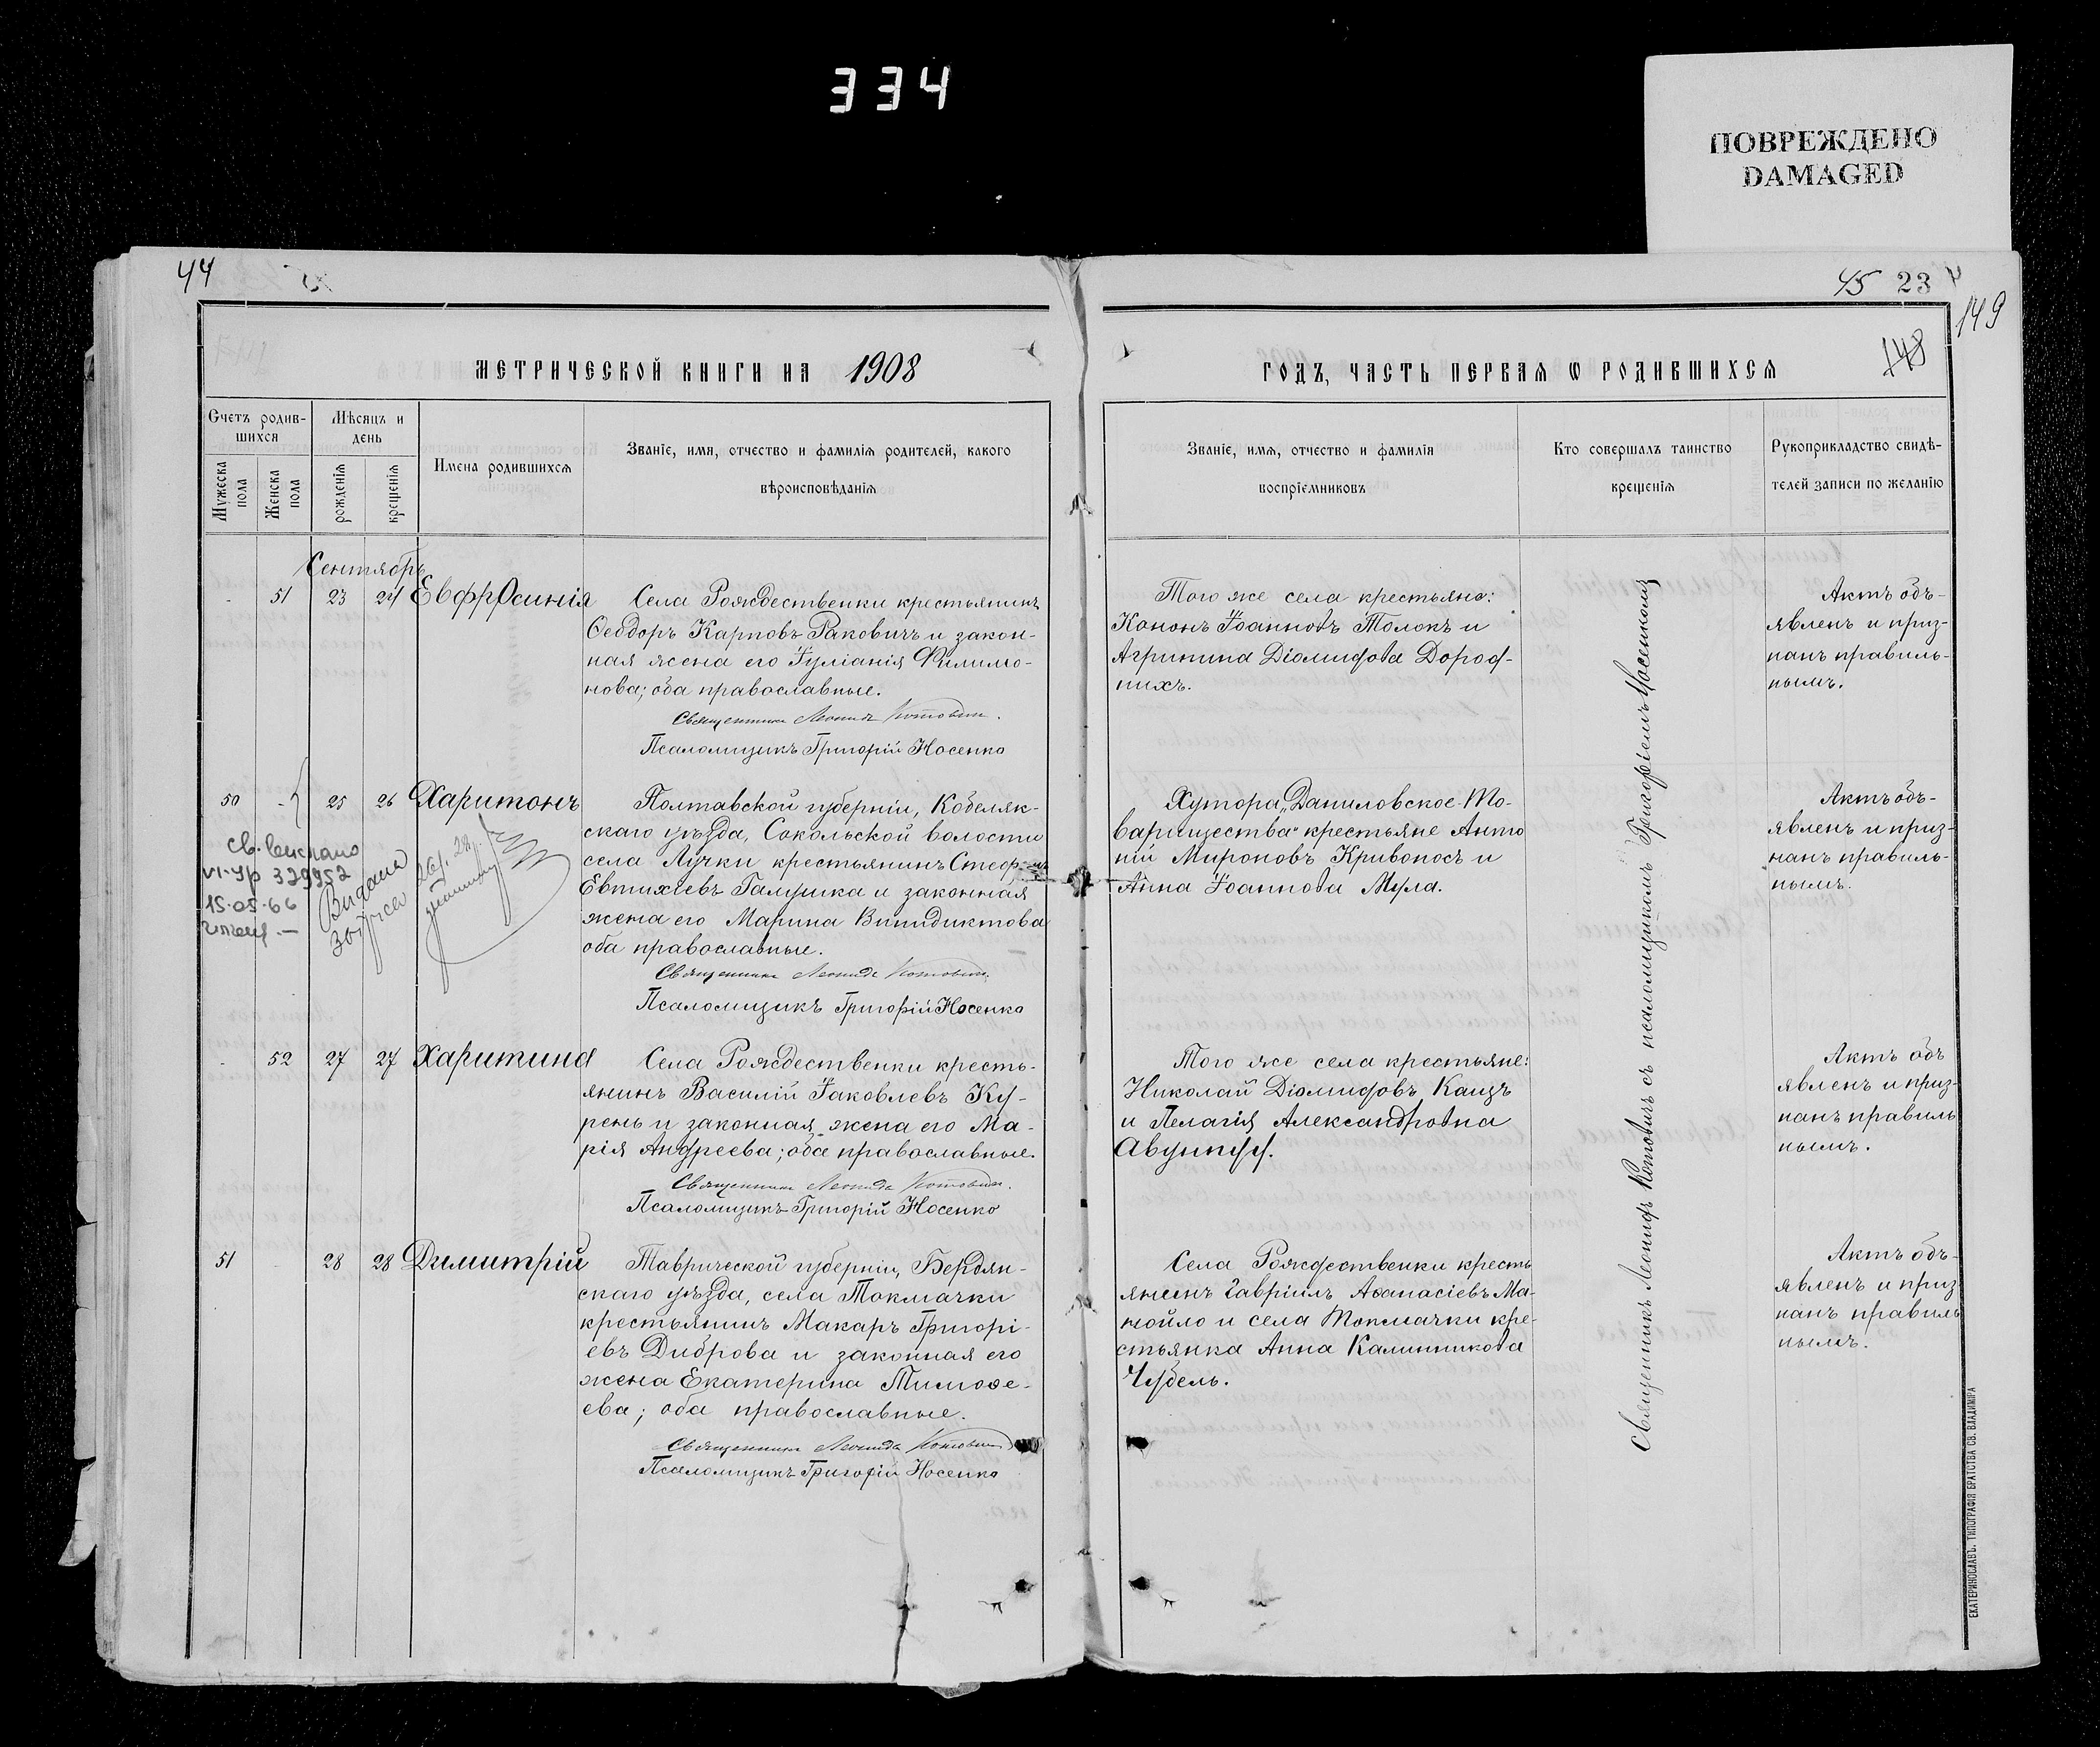 334
ПОВРЕЖДЕНО
DAMAGED
44
45 23
149
148
МЕТРИЧЕСКОЙ КНИГИ НА 1908
ГОДЪ, ЧАСТЬ ПЕРВАЯ Ѡ РОДИВШИХСЯ
Счетъ родив-
шихся
Мужеска пола
Женска пола
Мѣсяцъ и
день
рожденія
крещенія
Имена родившихся
Званіе, имя, отчество и фамилія родителей, какого
вѣроисповѣданія
Званіе, имя, отчество и фамилія
воспріемниковъ
Кто совершалъ таинство
крещенія
Рукоприкладство свидѣ-
телей записи по желанію
Сентябрь
- 51 23 24 Евфросинія
Села Рождественки крестьянинъ
Ѳеодоръ Карповъ Раковичъ и закон-
ная жена его Іуліанія Филимо-
нова; оба православные.
Священникъ Леонидъ Котовичъ.
Псаломщикъ Григорій Носенко
Того же села крестьяне:
Кононъ Іоанновъ Толокъ и
Агрипина Діомидова Дороф-
нихъ.
Актъ объ-
явленъ и приз-
нанъ правиль-
нымъ.
50 - 25 26 Харитонъ
Полтавской губерніи, Кобеляк-
скаго уѣзда, Сокольской волости
села Лучки крестьянинъ Стефанъ
Евтихіевъ Галушка и законная
жена его Марина Винидиктова
оба православные.
Священникъ Леонидъ Котовичъ.
Псаломщикъ Григорій Носенко
св.
VI-УР 329952
15.05.66
Видана
Хутора „Даниловское То-
варищества“ крестьяне Анто
ній Мироновъ Кривоносъ и
Анна Іоаннова Мула.
Актъ объ-
явленъ и приз-
нанъ правиль-
нымъ.
- 52 27 27 Харитина
Села Рождественки кресть-
янинъ Василій Іаковлевъ Ку-
рень и законная жена его Ма-
рія Андреева; оба православные.
Священникъ Леонидъ Котовичъ.
Псаломщикъ Григорій Носенко
Того же села крестьяне:
Николай Діомидовъ Кацъ
и Пелагія Александровна
Актъ объ
явленъ и приз-
нанъ правиль
нымъ.
51 28 28 Димитрій
Таврической губерніи, Бердян-
скаго уѣзда, села Токмачки
крестьянинъ Макаръ Григорі-
евъ Диброва и законная его
жена Екатерина Тимоѳе-
ева; оба православные.
Священникъ Леонидъ Котовичъ
Псаломщикъ Григорій Носенко
Села Рождественки кресть
янинъ Гавріилъ Аѳанасіевъ Ма-
нойло и села Токмачки кре-
стьянка Анна Калинникова
Чубель.
Актъ объ-
явленъ и приз
нанъ правиль
нымъ.
Священникъ Леонидъ Котовичъ съ псаломщикомъ Григоріемъ Носенкомъ
ЕКАТЕРИНОСЛАВЪ, ТИПОГРАФІЯ БРАТСТВА СВ. ВЛАДИМІРА